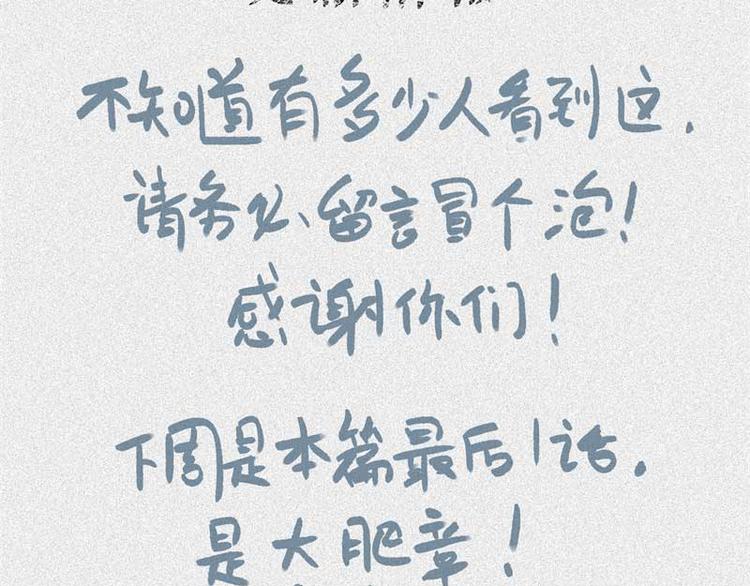 不知道有多少人看到这.
请务必留言冒个泡!
感谢你们!
下周是本篇最后1话.
是大肥章!